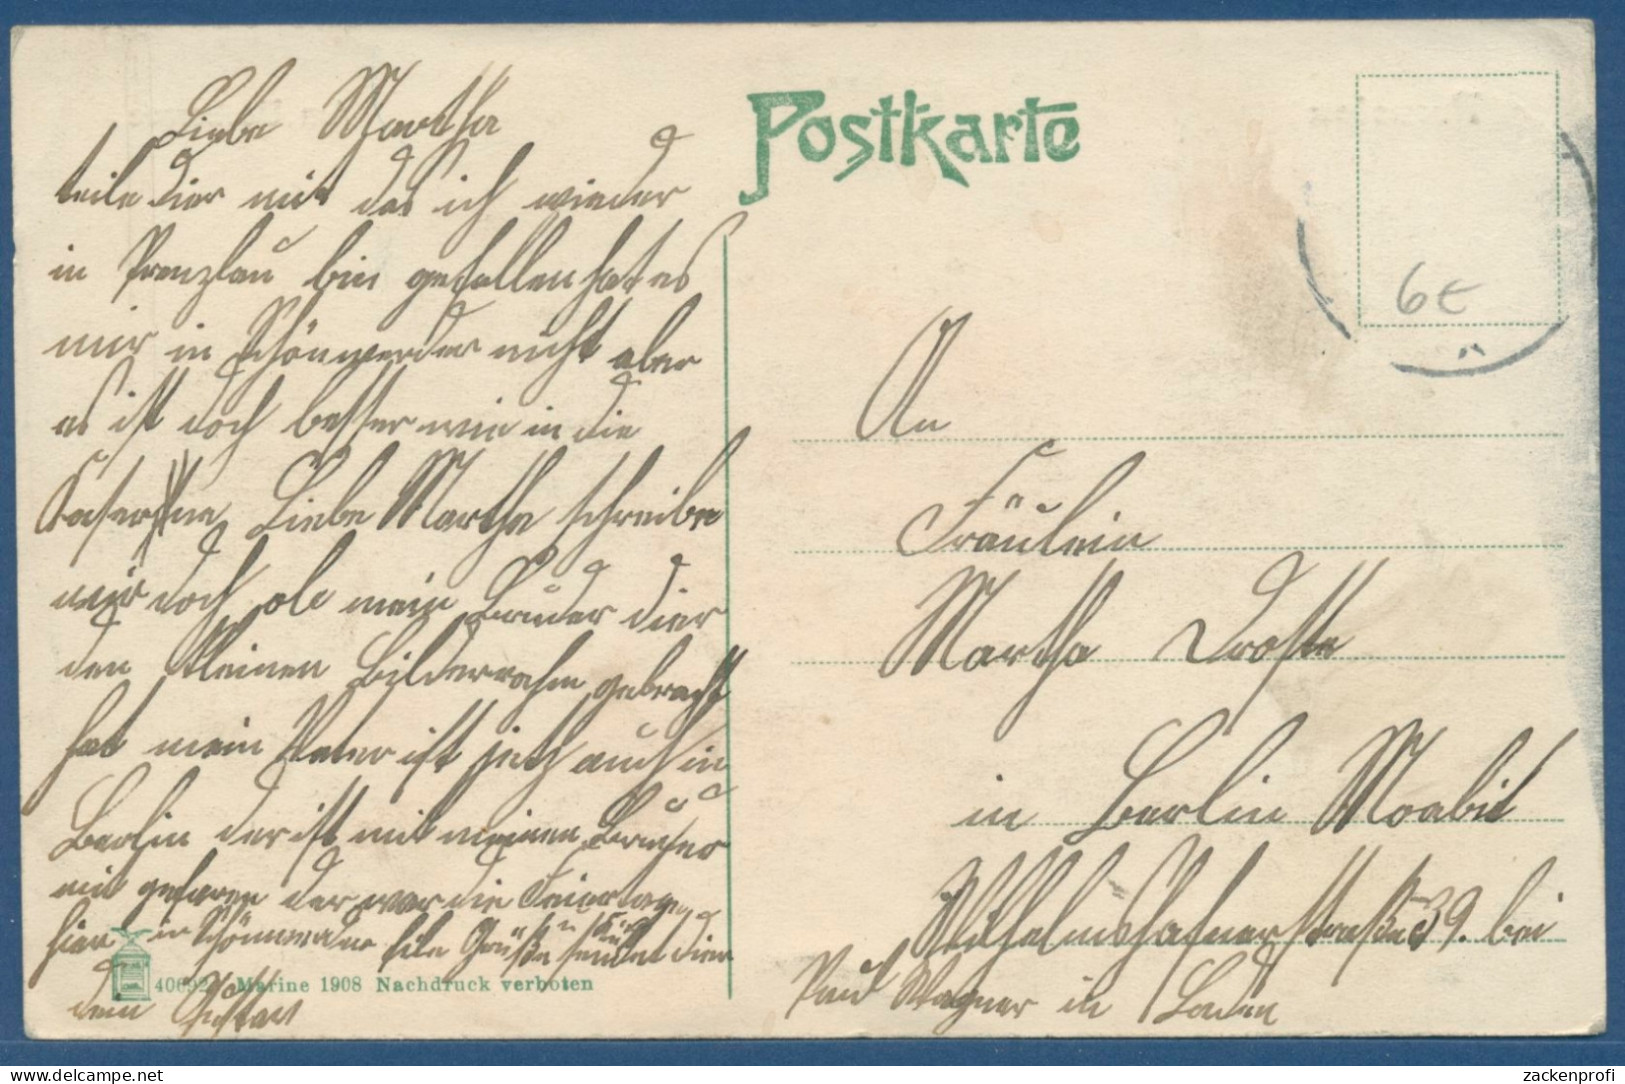 Liebe Martha
teile dier mit das ich wieder
in Prenzlau bin gefallen hat es
mir in Schönwerder nicht aber
es ist doch besser wie in die
Kaserne Liebe Martha schreibe
mir doch ob mein Bruder dier
den kleinen Bilderrahm gebracht
hat mein Vater ist jetz auch in
Berlin der ist mit meinen Bruder
mit gefaren der war die Feiertage
hier in Schönwerder file Grüße u Küße sendet dier
dein Gustav
Postkarte
6€
An
Fräulein
Martha Droste
in Berlin Moabit
Wilhelmshafnerstraße 39. bei
Paul Wagner in Laden
Marine 1908 Nachdruck verboten
delcampe.net
zackenprofi